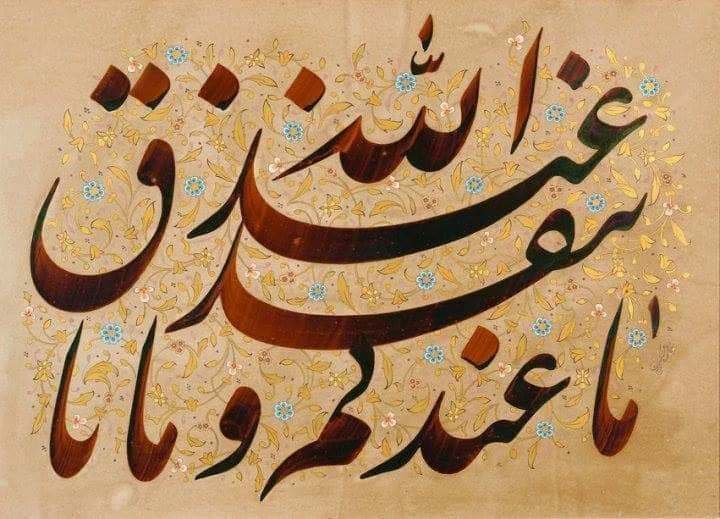 ما عندكم ينفد و ما عند الله باق